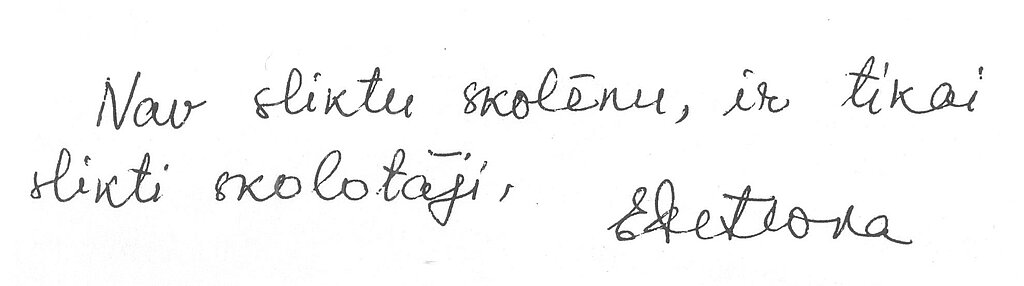 Nav sliktu skolēnu, ir tikai
slikti skolotāji.